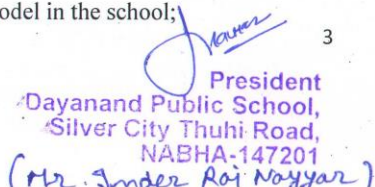 odel in the school;
3
President
Dayanand Public School,
Silver City Thuhi Road,
NABHA-147201
(Mr. Inder Raj Nayyar)